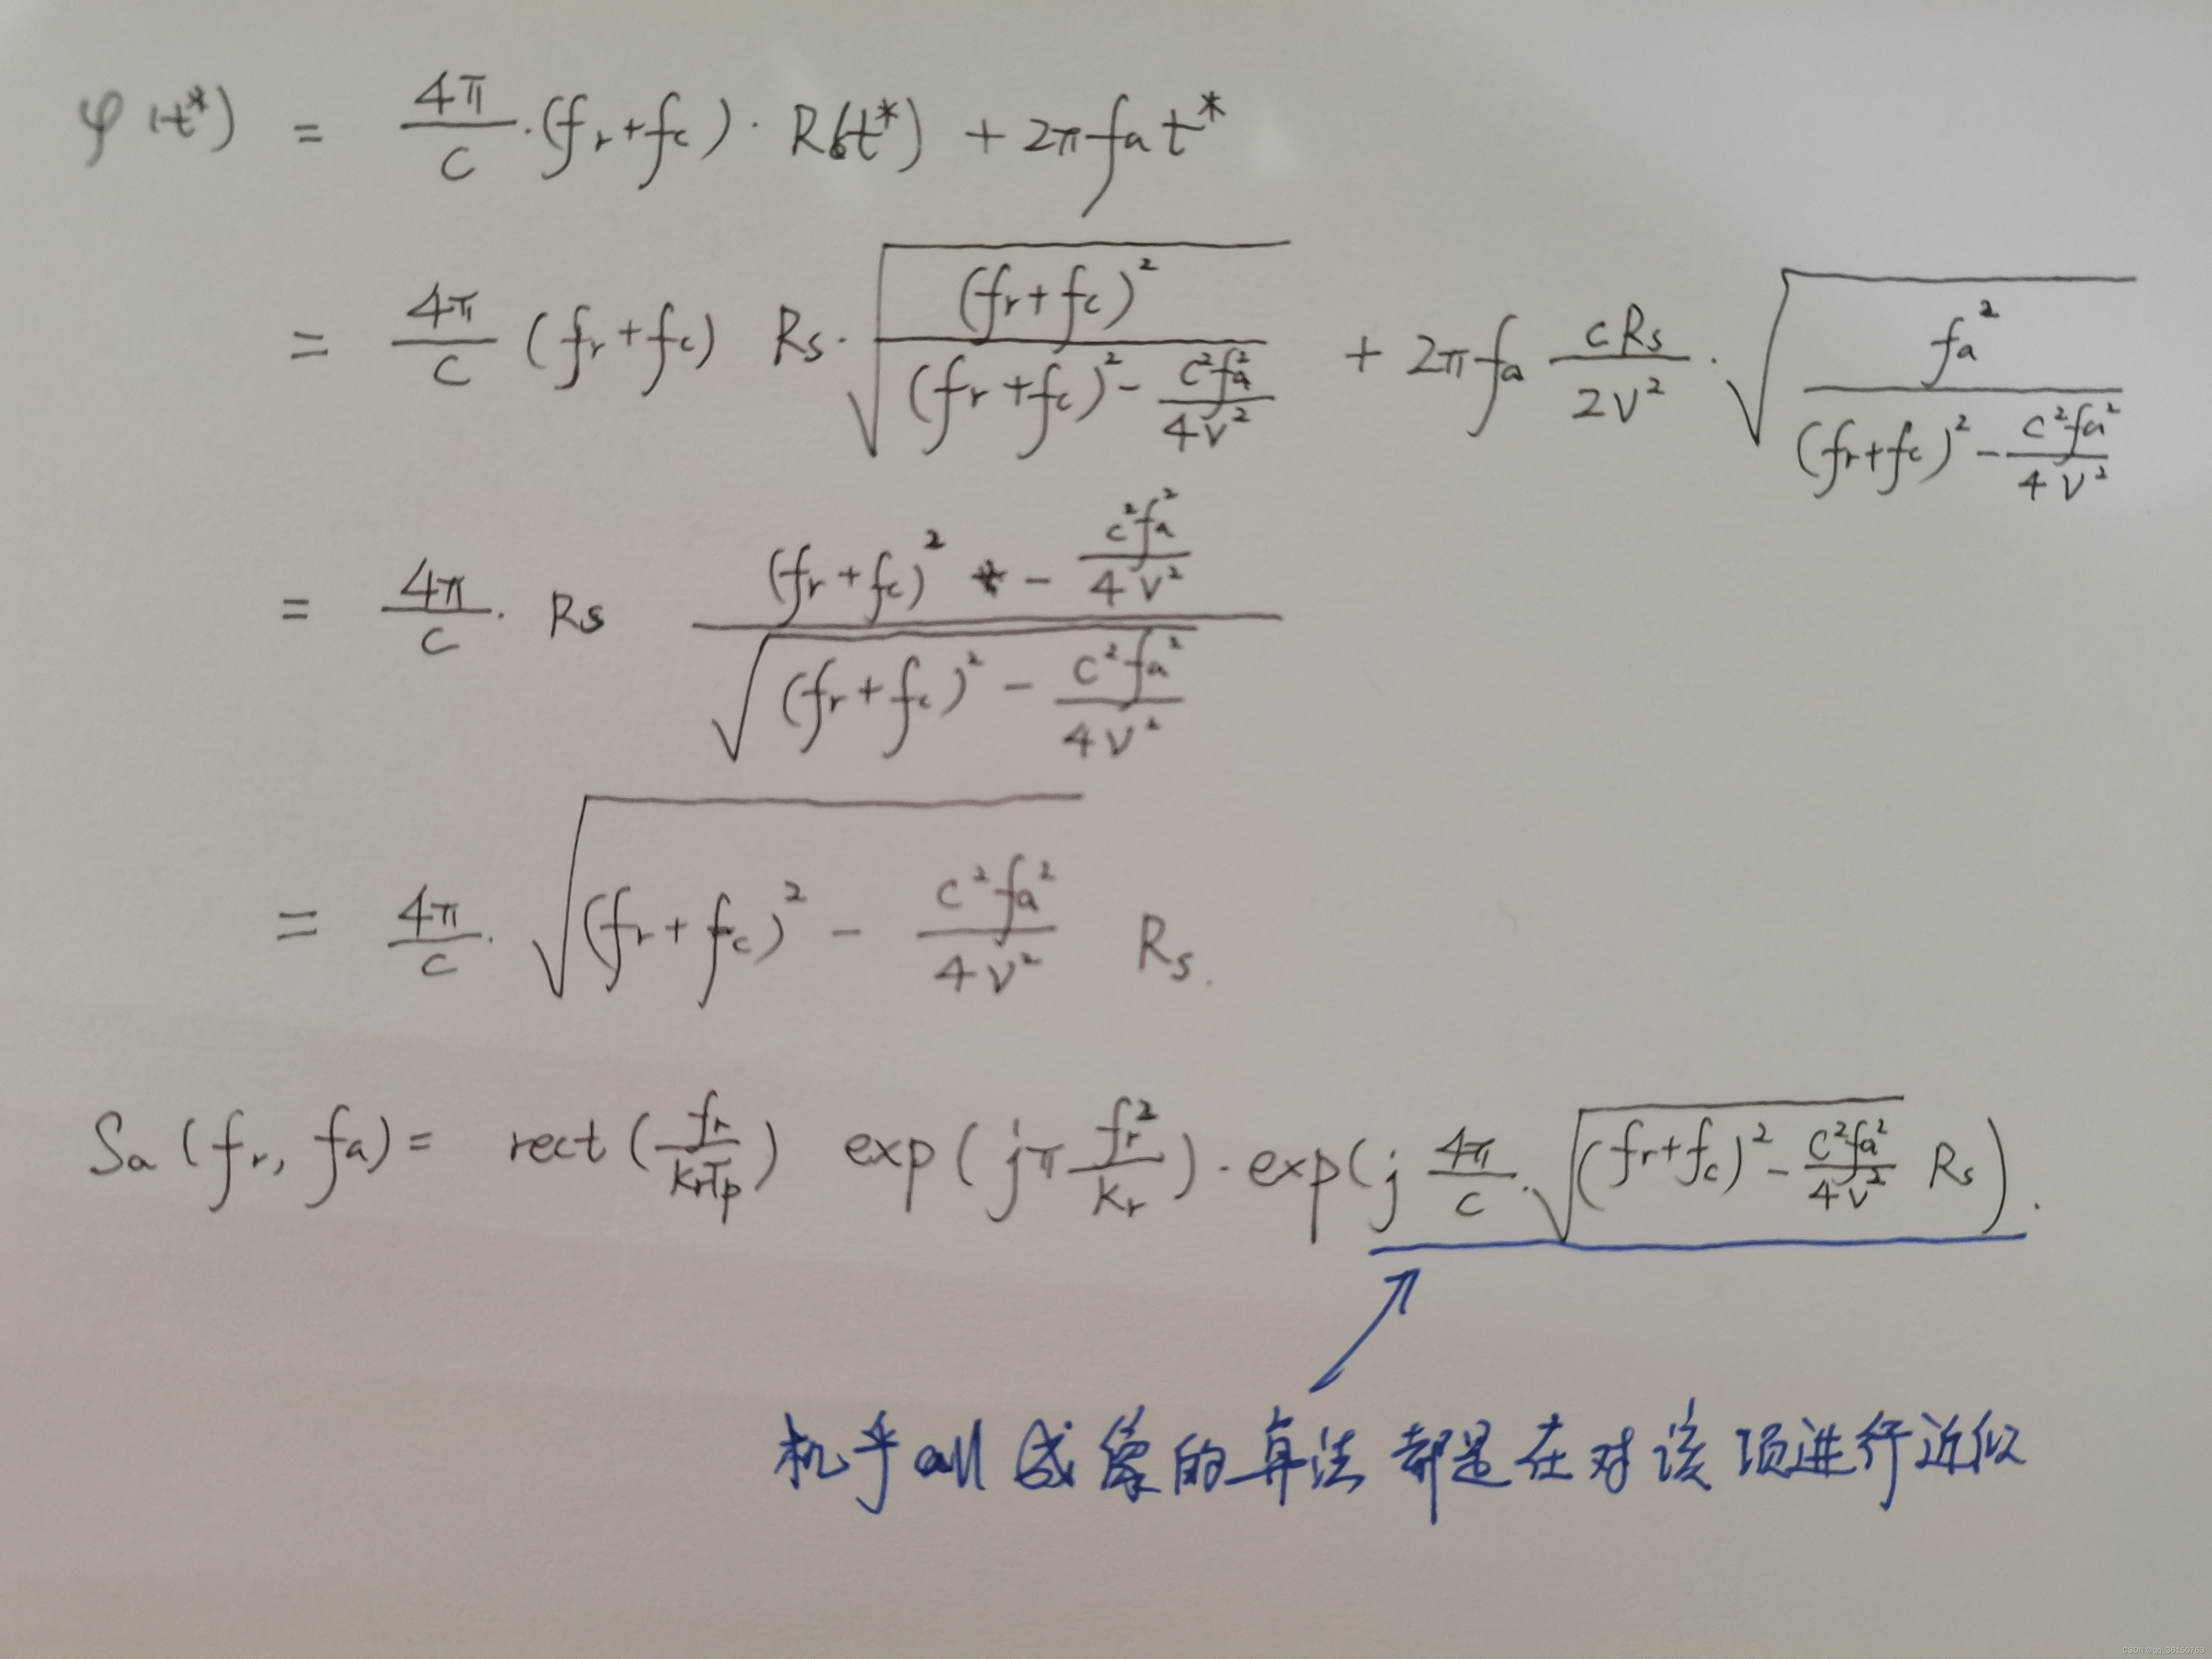 φ(t*) = 4π/c · (fr+fc) · R(t*) + 2πfa t*
= 4π/c (fr+fc) Rs · √((fr+fc)² / ((fr+fc)² - c²fa²/4v²)) + 2πfa cRs/2v² · √(fa² / ((fr+fc)² - c²fa²/4v²))
= 4π/c · Rs ((fr+fc)² - c²fa²/4v²) / √((fr+fc)² - c²fa²/4v²)
= 4π/c · √((fr+fc)² - c²fa²/4v²) Rs.
Sa(fr, fa) = rect(fr/krTp) exp(jπ fr²/kr) · exp(j 4π/c · √((fr+fc)² - c²fa²/4v²) Rs).
机乎all成像的算法都是在对该项进行近似
CSDN @qq_36150763